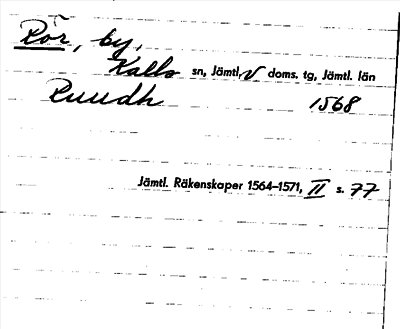 Rör, by,
Kalls sn, Jämtl. V doms. tg, Jämtl. län
Ruudh 1568
Jämtl. Räkenskaper 1564–1571, II s. 77